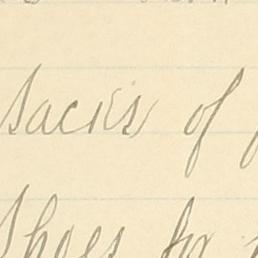 Sacks of
Shoes for